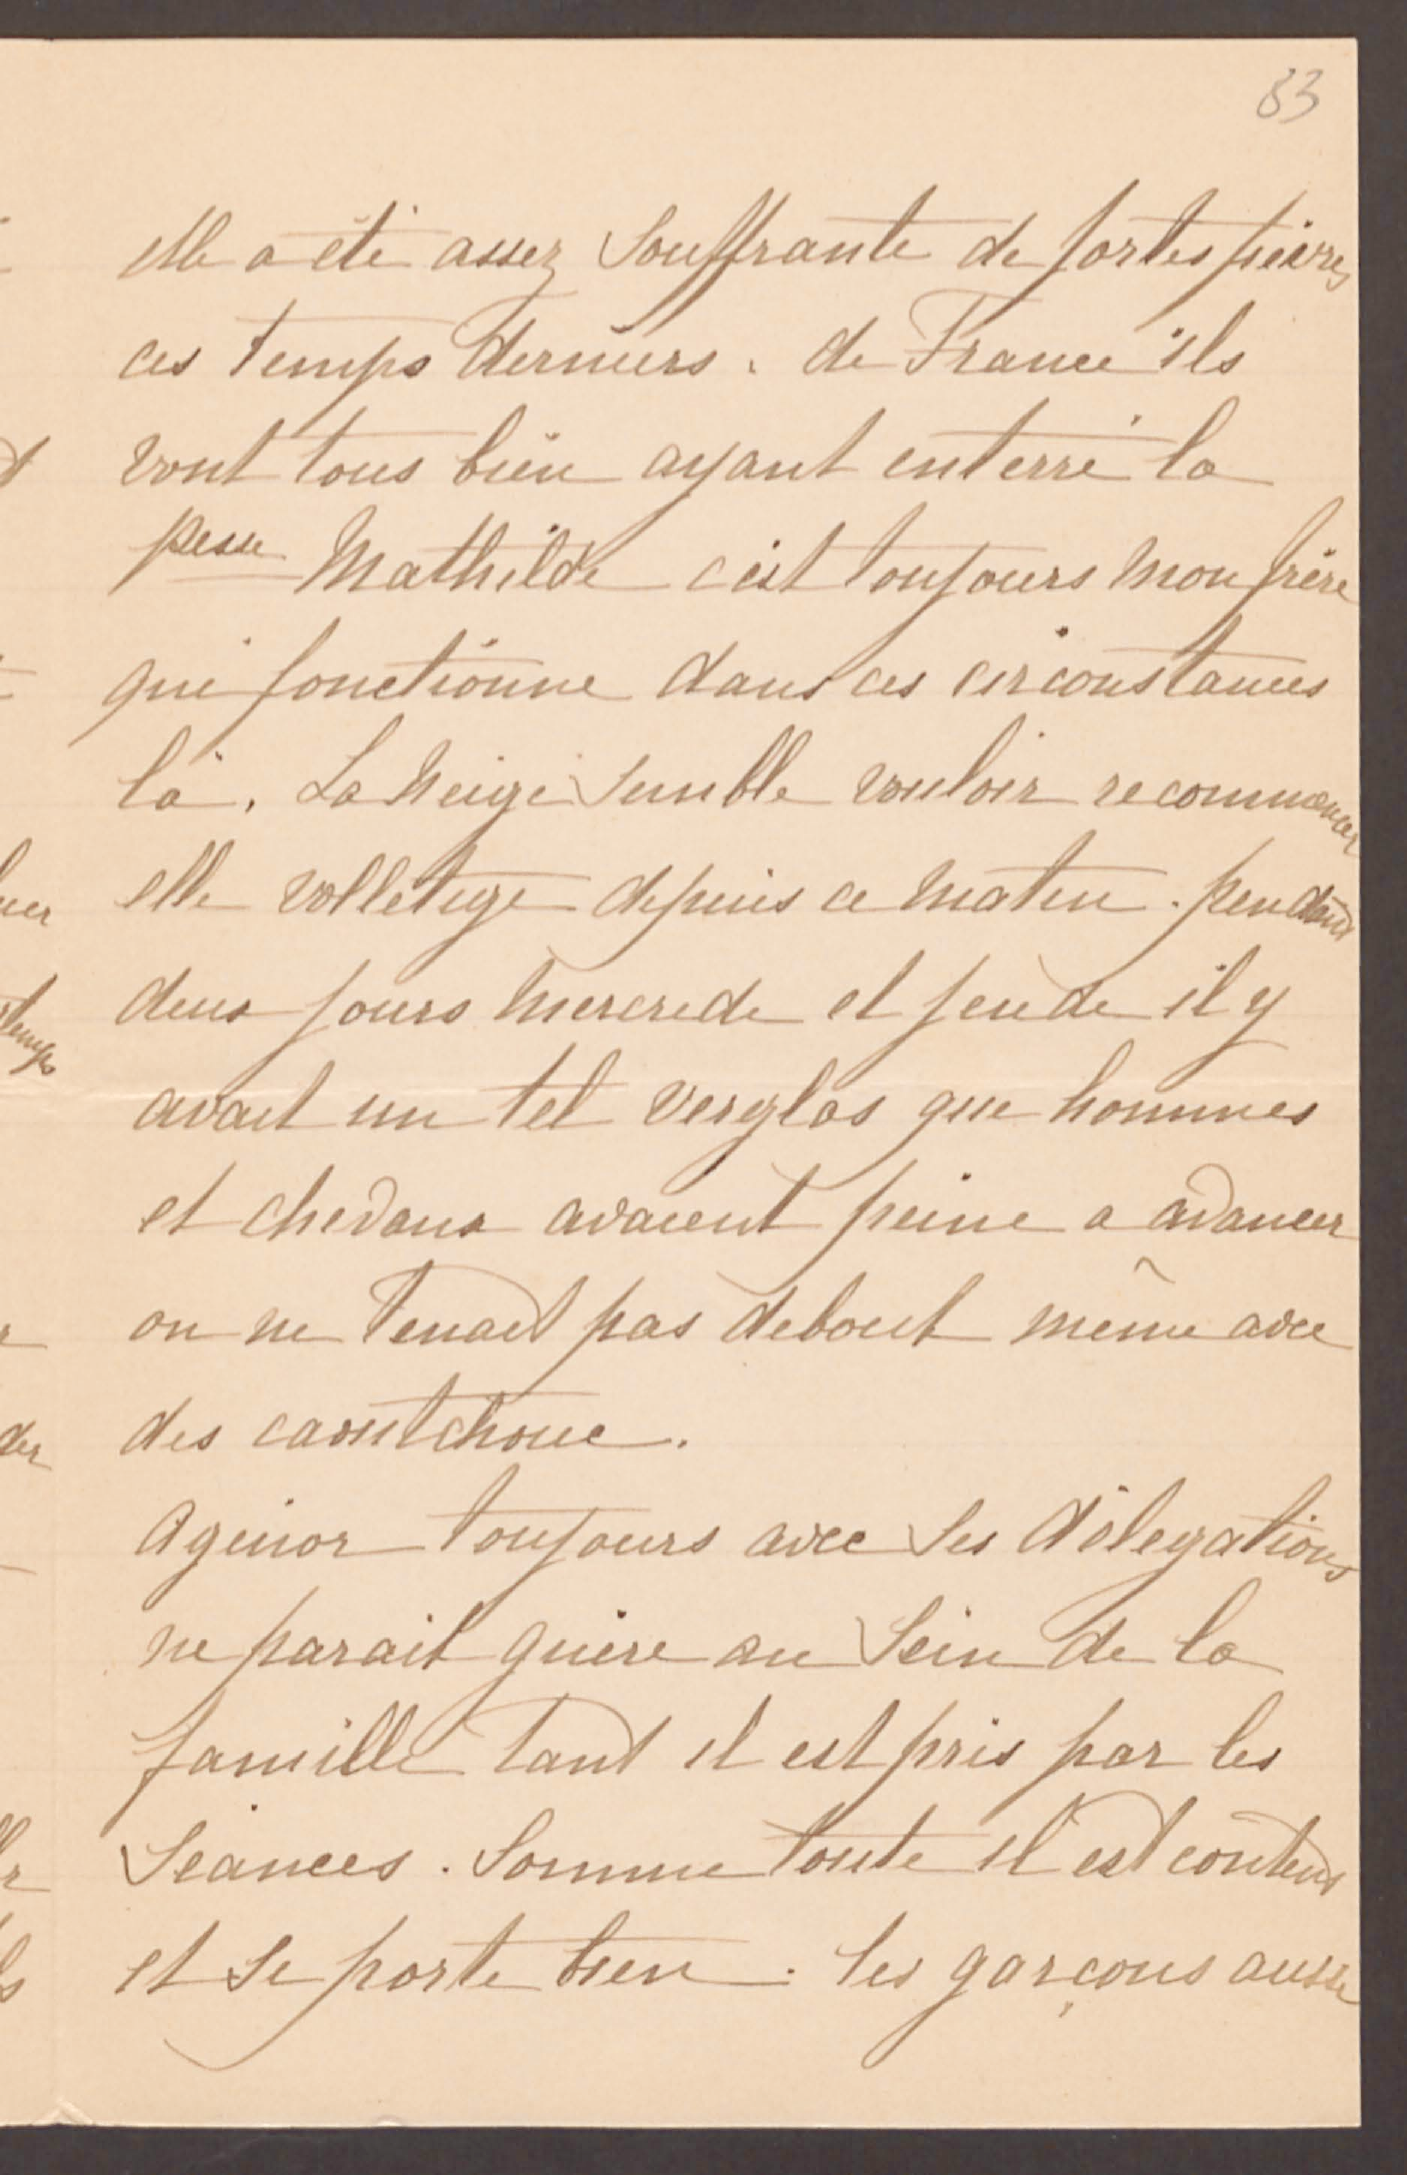 83
elle a été assez Souffrante de fortes fièvres
ces temps derniers. de France ils
vont tous bien ayant enterré la
pesse Mathilde c'est toujours mon frère
qui fonctionne dans ces circonstances
là. La Neige Semble vouloir recommencer
elle volletige depuis ce matin. pendant
deux jours Mercredi et jeudi il y
avait un tel verglas que hommes
et chevaux avaient peine a avancer
on ne Tenait pas debout même avec
des caoutchouc.
Agenor toujours avec Ses délegations
ne parait guère au Sein de la
famille tant il est pris par les
Séances. Somme toute il est content
et se porte bien. les garçons aussi